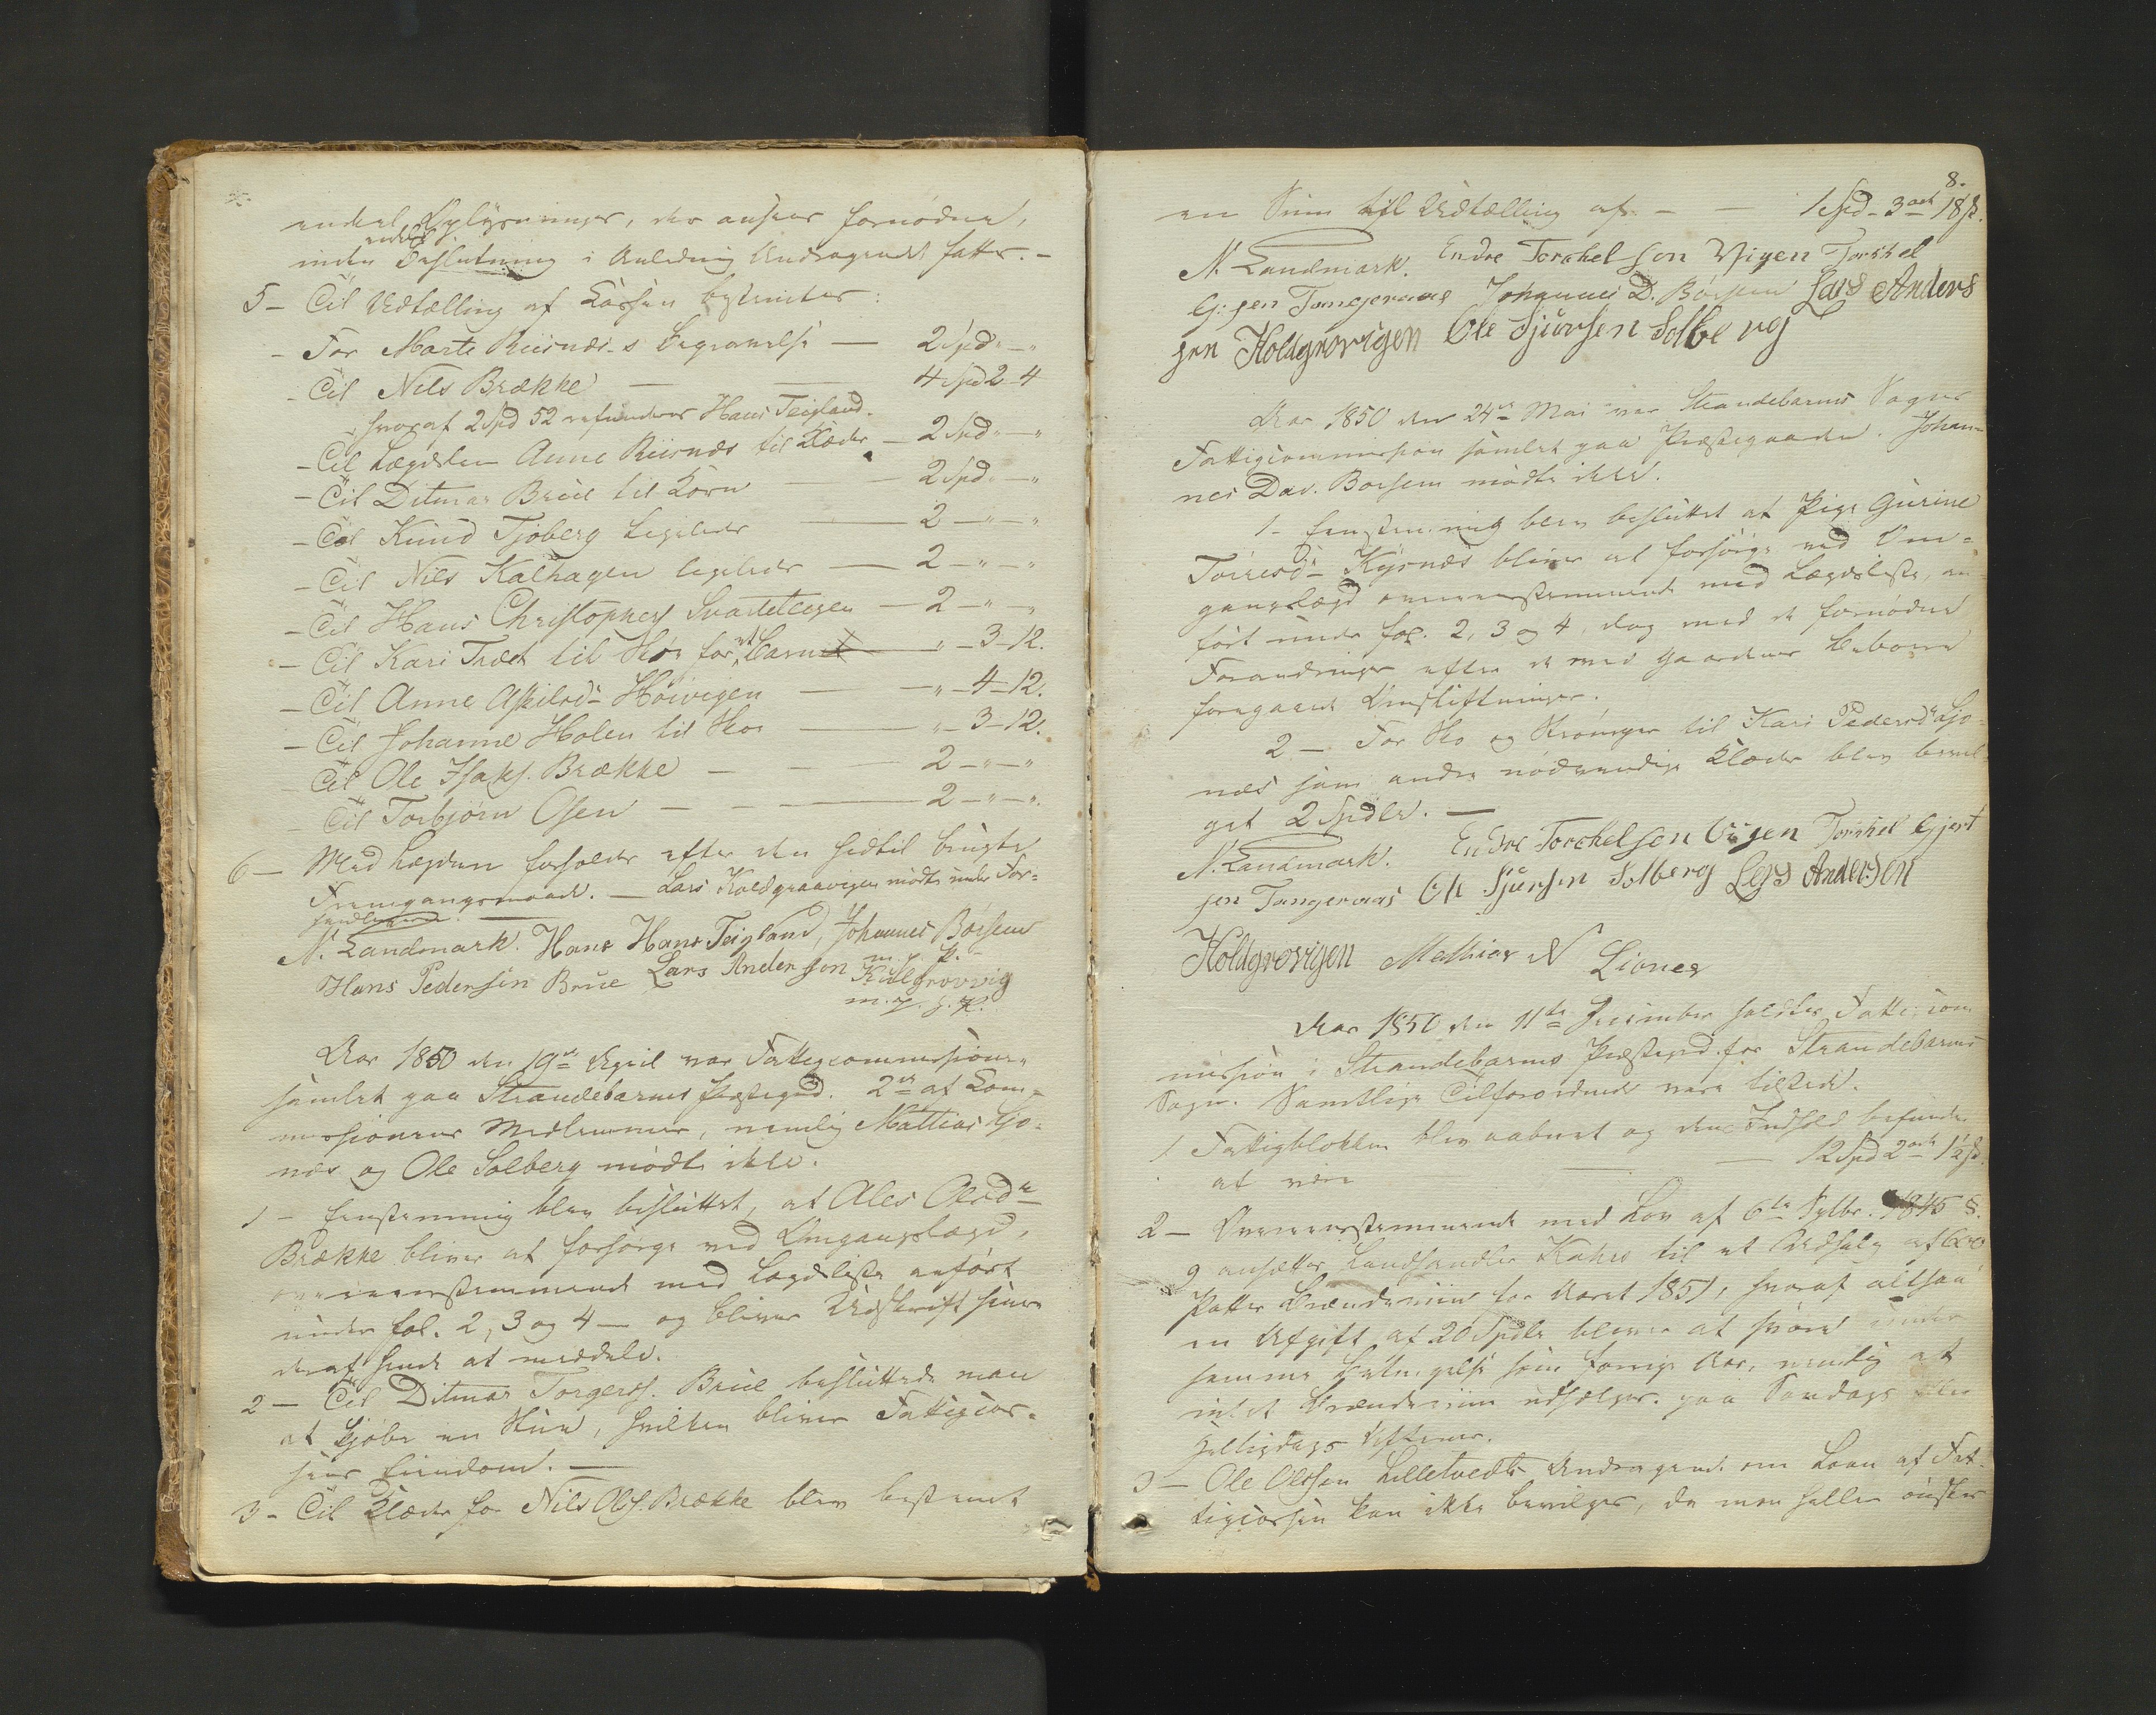 andre Oplysninger, der ansees fornødne,
inden endelig Beslutning i Anledning Andragendet fattes. -
5 - Til Udtælling af Kassen bestemtes:
- For Marte Riisnæs-s Begravelse — 2 Spd " - "
- Til Nils Brække — 4 Spd 2 - 4
hvoraf 2 Spd 52 refunderes Hans Teigland.
- Til Lægdslem Anne Riisnæs til Klæder - 2 Spd " - "
- Til Ditmar Brue til Korn — 2 Spd " - "
- Til Knud Tjøberg ligeledes — 2 - " - "
- Til Nils Kalhagen ligeledes — 2 - " - "
- Til Hans Christophers. Svarteteigen - 2 - " - "
- Til Kari Træet til Skoe for et Barn — " - 3 - 12.
- Til Anne Askilsd. Høivigen — " - 4 - 12.
- Til Johanne Holen til Skoe — " - 3 - 12.
- Til Ole Isaks. Brække — 2 - " - "
- Til Torbjørn Osen — 2 - " - ".
6 - Med Lægden forholdes efter den hidtil brugte
Fremgangsmaade. — Lars Holdgraavigen mødte under For-
handlingerne. —
N. Landmark. Hans Hans Teigland, Johannes Børsem
Hans Pedersen Brue Lars Andersson Holgrovvig m. p. P.
m. p. j. P.
Aar 1850 den 19de April var Fattigcommissionen
samlet paa Strandebarms Præstegrd. 2de af Com-
missionens Medlemmer, nemlig Mathias Ljo-
næs og Ole Solberg mødte ikke.
1 - Eenstemmig blev besluttet, at Ales Olsdr
Brække bliver at forsørge ved Omgangslægd,
overeensstemmende med Lægdsliste anført
under fol. 2, 3 og 4 — og bliver Udskrift
deraf hende at meddele.
2 - Til Ditmar Torgers. Brue besluttede man
at kjøbe en Kue, hvilken bliver Fattigcas-
sens Eiendom. —
3 - Til Klæder for Nils Ols. Brække blev bestemt
8.
en Sum til Udtælling af - — 1 Spd - 3 ort 18 s.
N. Landmark. Endre Torchelsen Vigen Torchel
Gj: sen Tangeraas Johannes D. Børsem Lars Anders
sen Holdgrovigen Ole Sjursen Solberg
Aar 1850 den 24de Mai var Strandebarms Sogns
Fattigcommission samlet paa Præstegaarden. Johan-
nes Dav. Børsem mødte ikke.
1 - Eenstemmig blev besluttet at Pige Gurine
Torresd. Kysnæs bliver at forsørge ved Om-
gangslægd overeensstemmende med Lægdsliste, an-
ført under fol. 2, 3 og 4, dog med de fornødne
Forandringer efter de med Gaardenes Beboere
foregaaede Omskiftninger.
2 - For Sko og Strømper til Kari Pedersdr Ljo-
næs samt andre nødvendige Klæder blev bevil-
get 2 Spdlr. —
N. Landmark. Endre Torchelsen Vigen Torchel Gjert
sen Tangeraas Ole Sjursen Solberg Lars Andersen
Holdgrovigen Mathias N Liones
Aar 1850 den 11te December holdtes Fattigcom-
mission i Strandebarms Præstegrd. for Strandebarms
Sogn. Samtlige Tilforordnede vare tilstede.
1 Fattigblokken blev aabnet og dens Indhold befunden
at være — 12 Spd 2 ort 1½ s.
2 - Overeensstemmende med Lov af 6te Septbr. 1845 §.
9 ansættes Landhandler Kahrs til et Udsalg af 600
Potter Brændeviin for Aaret 1851, hvoraf altsaa
en Afgift af 20 Spdlr bliver at svare under
samme Betingelse som forrige Aar, nemlig at
intet Brændeviin udsælges paa Søndags eller
Helligdags Aftener.
3 - Ole Olsen Lilletvedts Andragende om Laan af Fat-
tigcassen kan ikke bevilges, da man heller ønsker